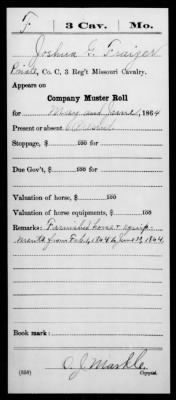 F 3 Cav. Mo.
Joshua G. Fraizer
Privat, Co. C, 3 Reg't Missouri Cavalry.
Appears on
Company Muster Roll
for May and June, 1864
Present or absent
Stoppage, $ 100 for
Due Gov't, $ 100
Valuation of horse, $ 100
Valuation of horse equipments, $ 100
Remarks: Furnished horse & equip-
ments from Feb 1864 to June 30, 1864
Book mark:
O. J. Markle
(358) Copyist.